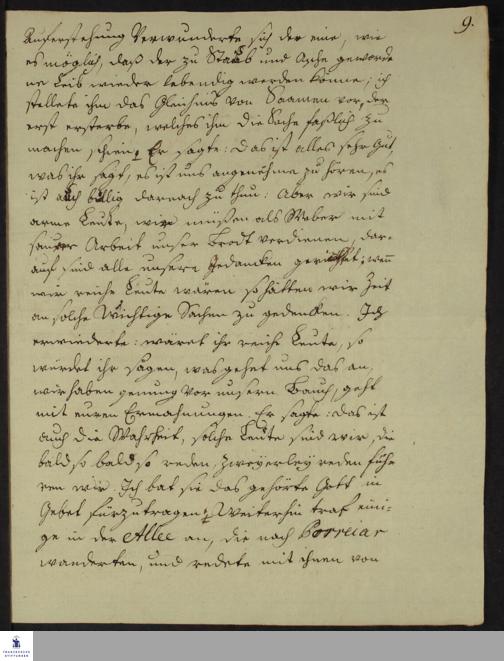 9.
Auferstehung Verwunderte sich der eine, wie
es möglich, daß der zu Staub und Asche geworde
ne Leib wieder lebendig werden könne; ich
stellete ihm das Gleichniß von Saamen vor, der
erst ersterbe, welches ihm die Sache faßlich zu
machen schien. Er sagte: Das ist alles sehr gut,
was ihr sagt, es ist uns angenehme zu hören, es
ist auch billig darnach zu thun: Aber wir sind
arme Leute, wir müßen als Weber mit
saurer Arbeit unser Brodt verdienen, dar-
auf sind alle unsere Gedancken gerichtet; weñ
wir reiche Leute wären so hätten wir Zeit
an solche Wichtige Sachen zu gedencken. Ich
erwiederte: wäret ihr reiche Leute, so
würdet ihr sagen, was gehet uns das an,
wir haben genung vor unsern Bauch, geht
mit euren Ermahnungen. Er sagte: das ist
auch die Wahrheit, solche Leute sind wir, die
bald so bald so reden, zweyerley reden füh-
ren wir. Ich bat sie das gehörte Gott in
Gebet fürzutragen. Weiterhin traf eini-
ge in der Allee an, die nach Porreiar
wanderten, und redete mit ihnen von
FRANCKESCHE
STIFTUNGEN